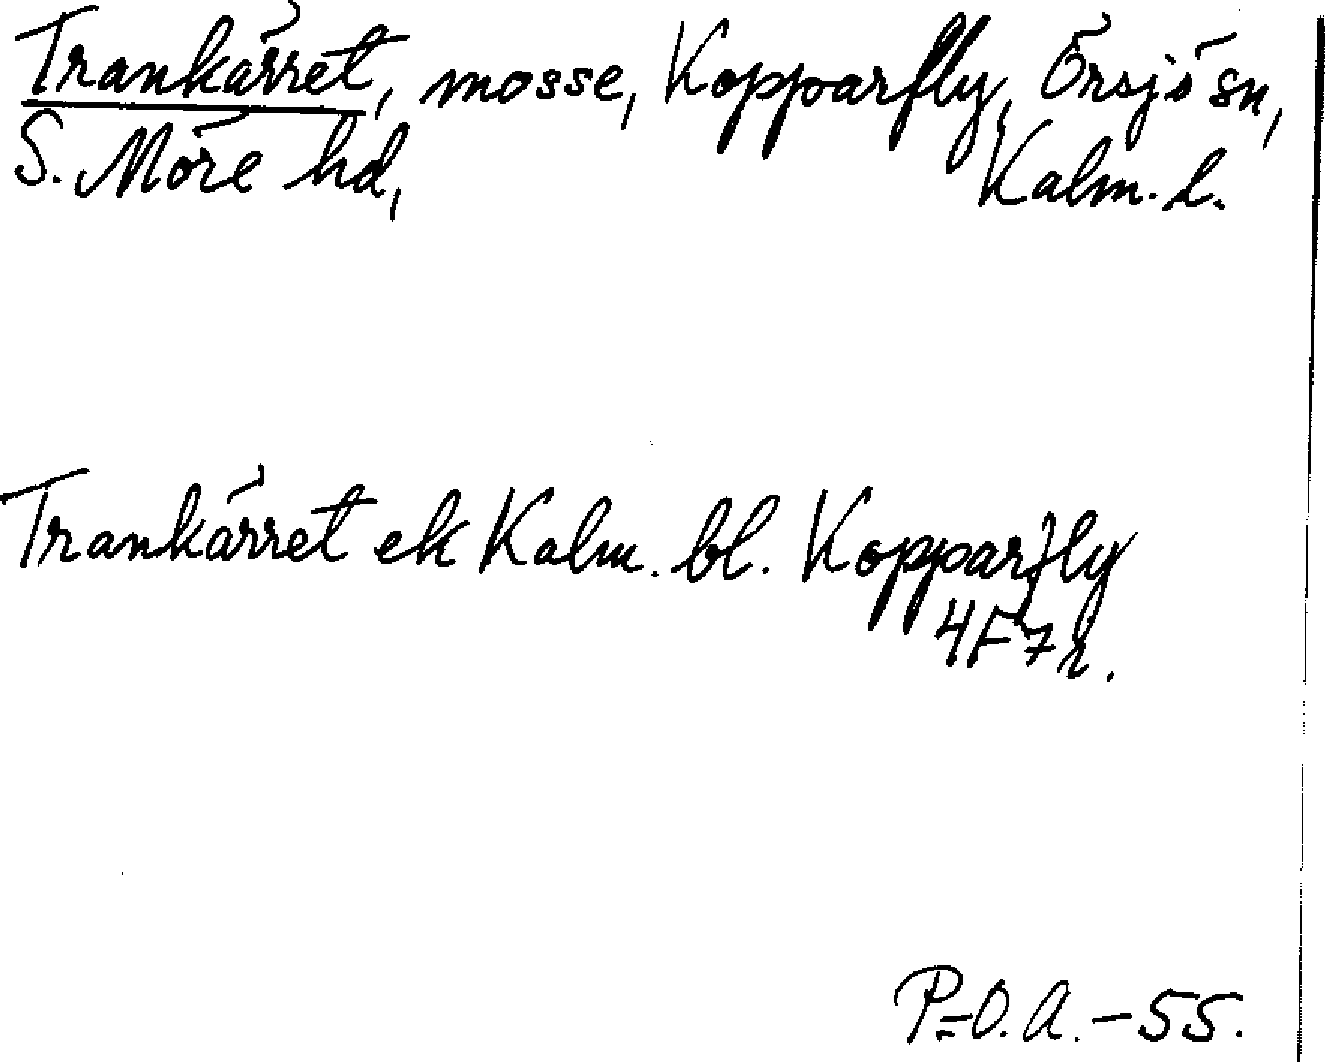 Trankärret, mosse, Kopparfly, Örsjö sn,
S. Möre hd, Kalm. l.
Trankärret ek Kalm. bl. Kopparfly
4F7h.
P=O.A.-55.